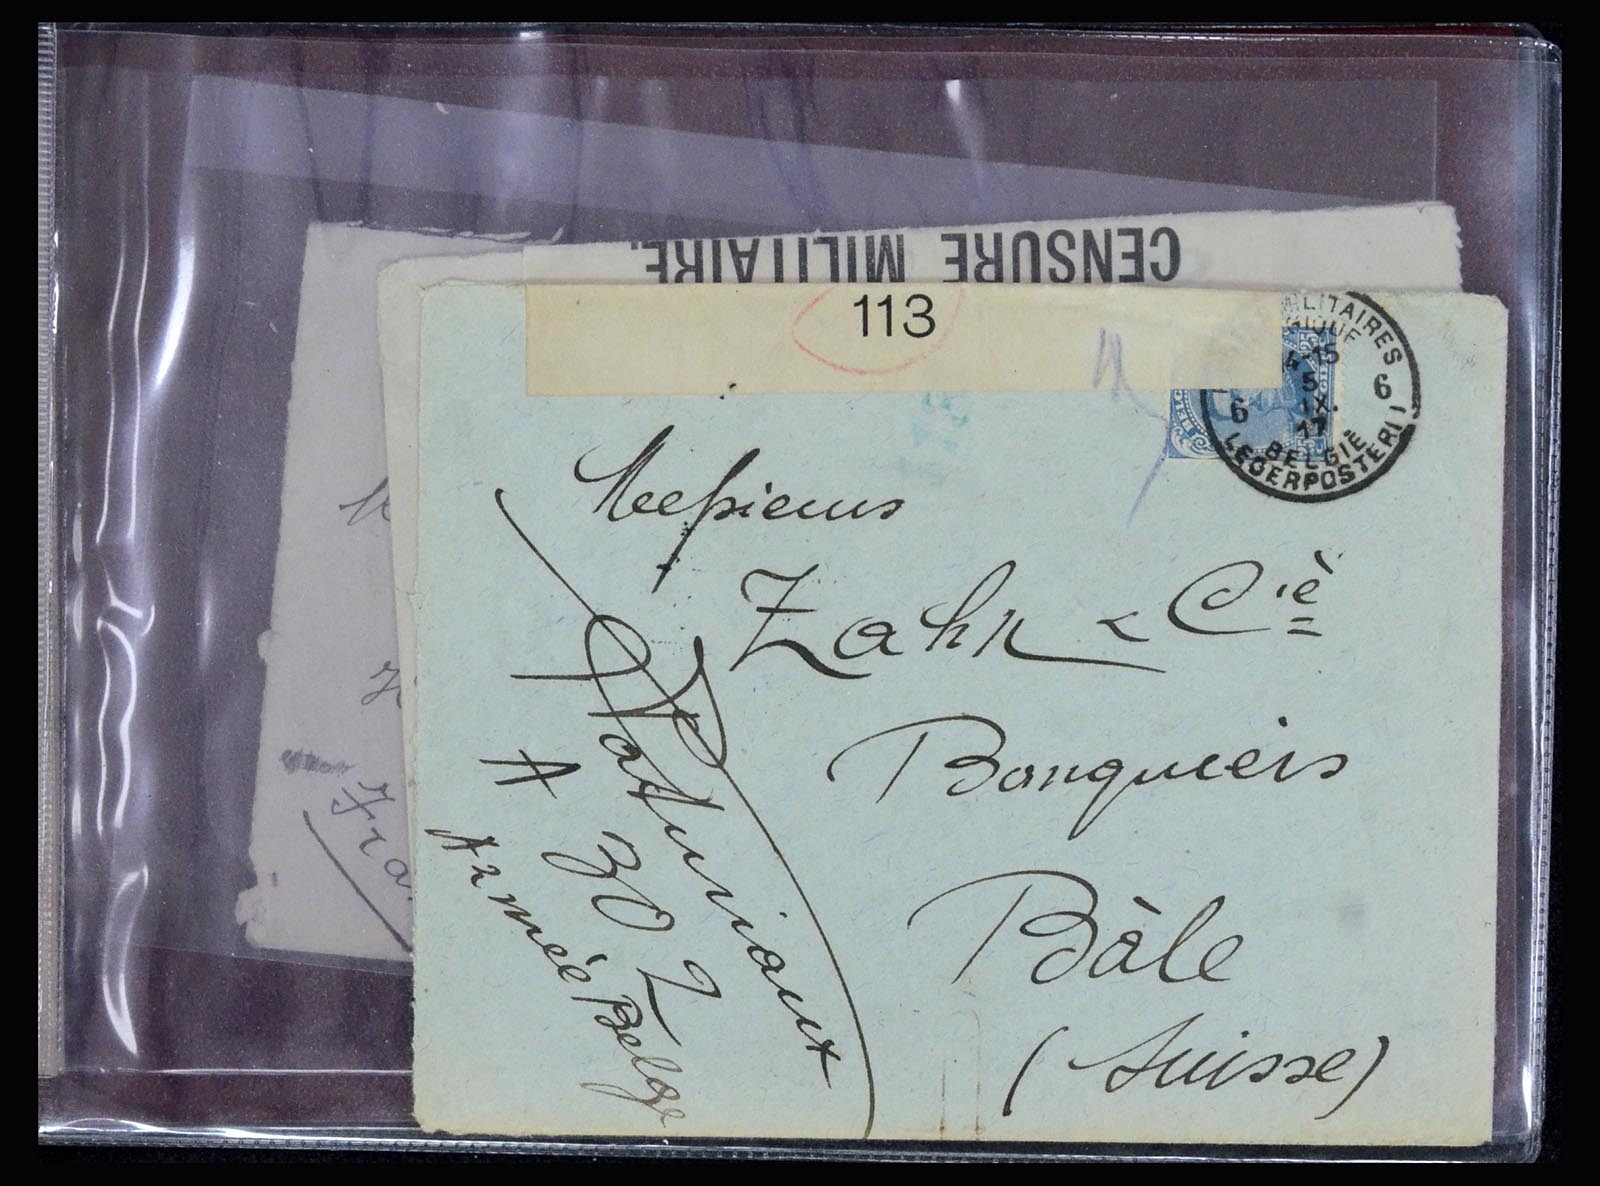 CENSURE MILITAIRE.
113
MILITAIRES
BELGIQUE
4-15
5
IX.
17
6 6
BELGIE
LEGERPOSTERIJ
25
Messieurs
Zahn & Cié
Banquiers
Bâle
(Suisse)
A 302
Armée Belge